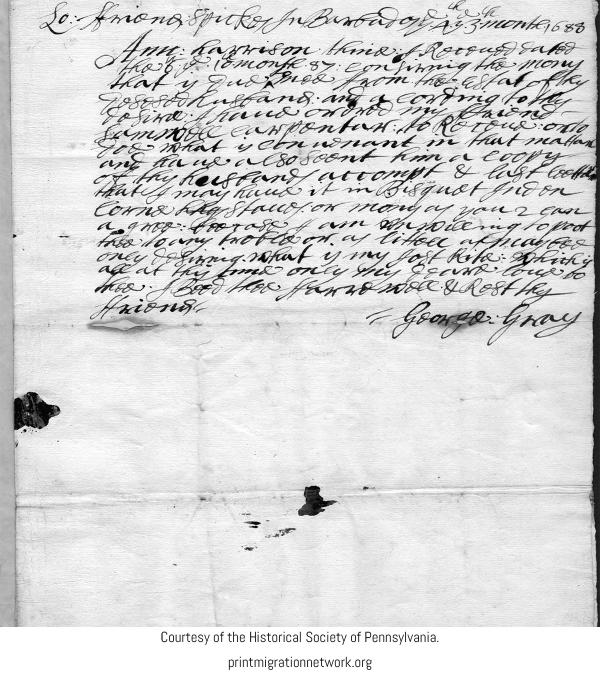 Lo: ffriend Spickes In Barbados ye 29th 3 month 1688
Ann: harrison thine I Receued dated
the 10 month 87: conserning the mony
that is due mee from the estat of thy
desesed husband: and acording to thy
desire I haue ordred my ffriend
Samuell carpentar: to Receue: onto
doe what is conuenant in that mattar
and haue also sent him a coopy
of thy husbands accompt & last letter
that I may haue it in Bisquet Inden
corne staues: or mony as you 2 can
a gree: becase I am unwilling to poot
thee to any troble or as littell as may bee
only desiring what is my Just Rite: which is
all at this time only my deare loue to
thee: I Beed thee ffarre well & Rest thy
ffriend
George: Gray
Courtesy of the Historical Society of Pennsylvania.
printmigrationnetwork.org